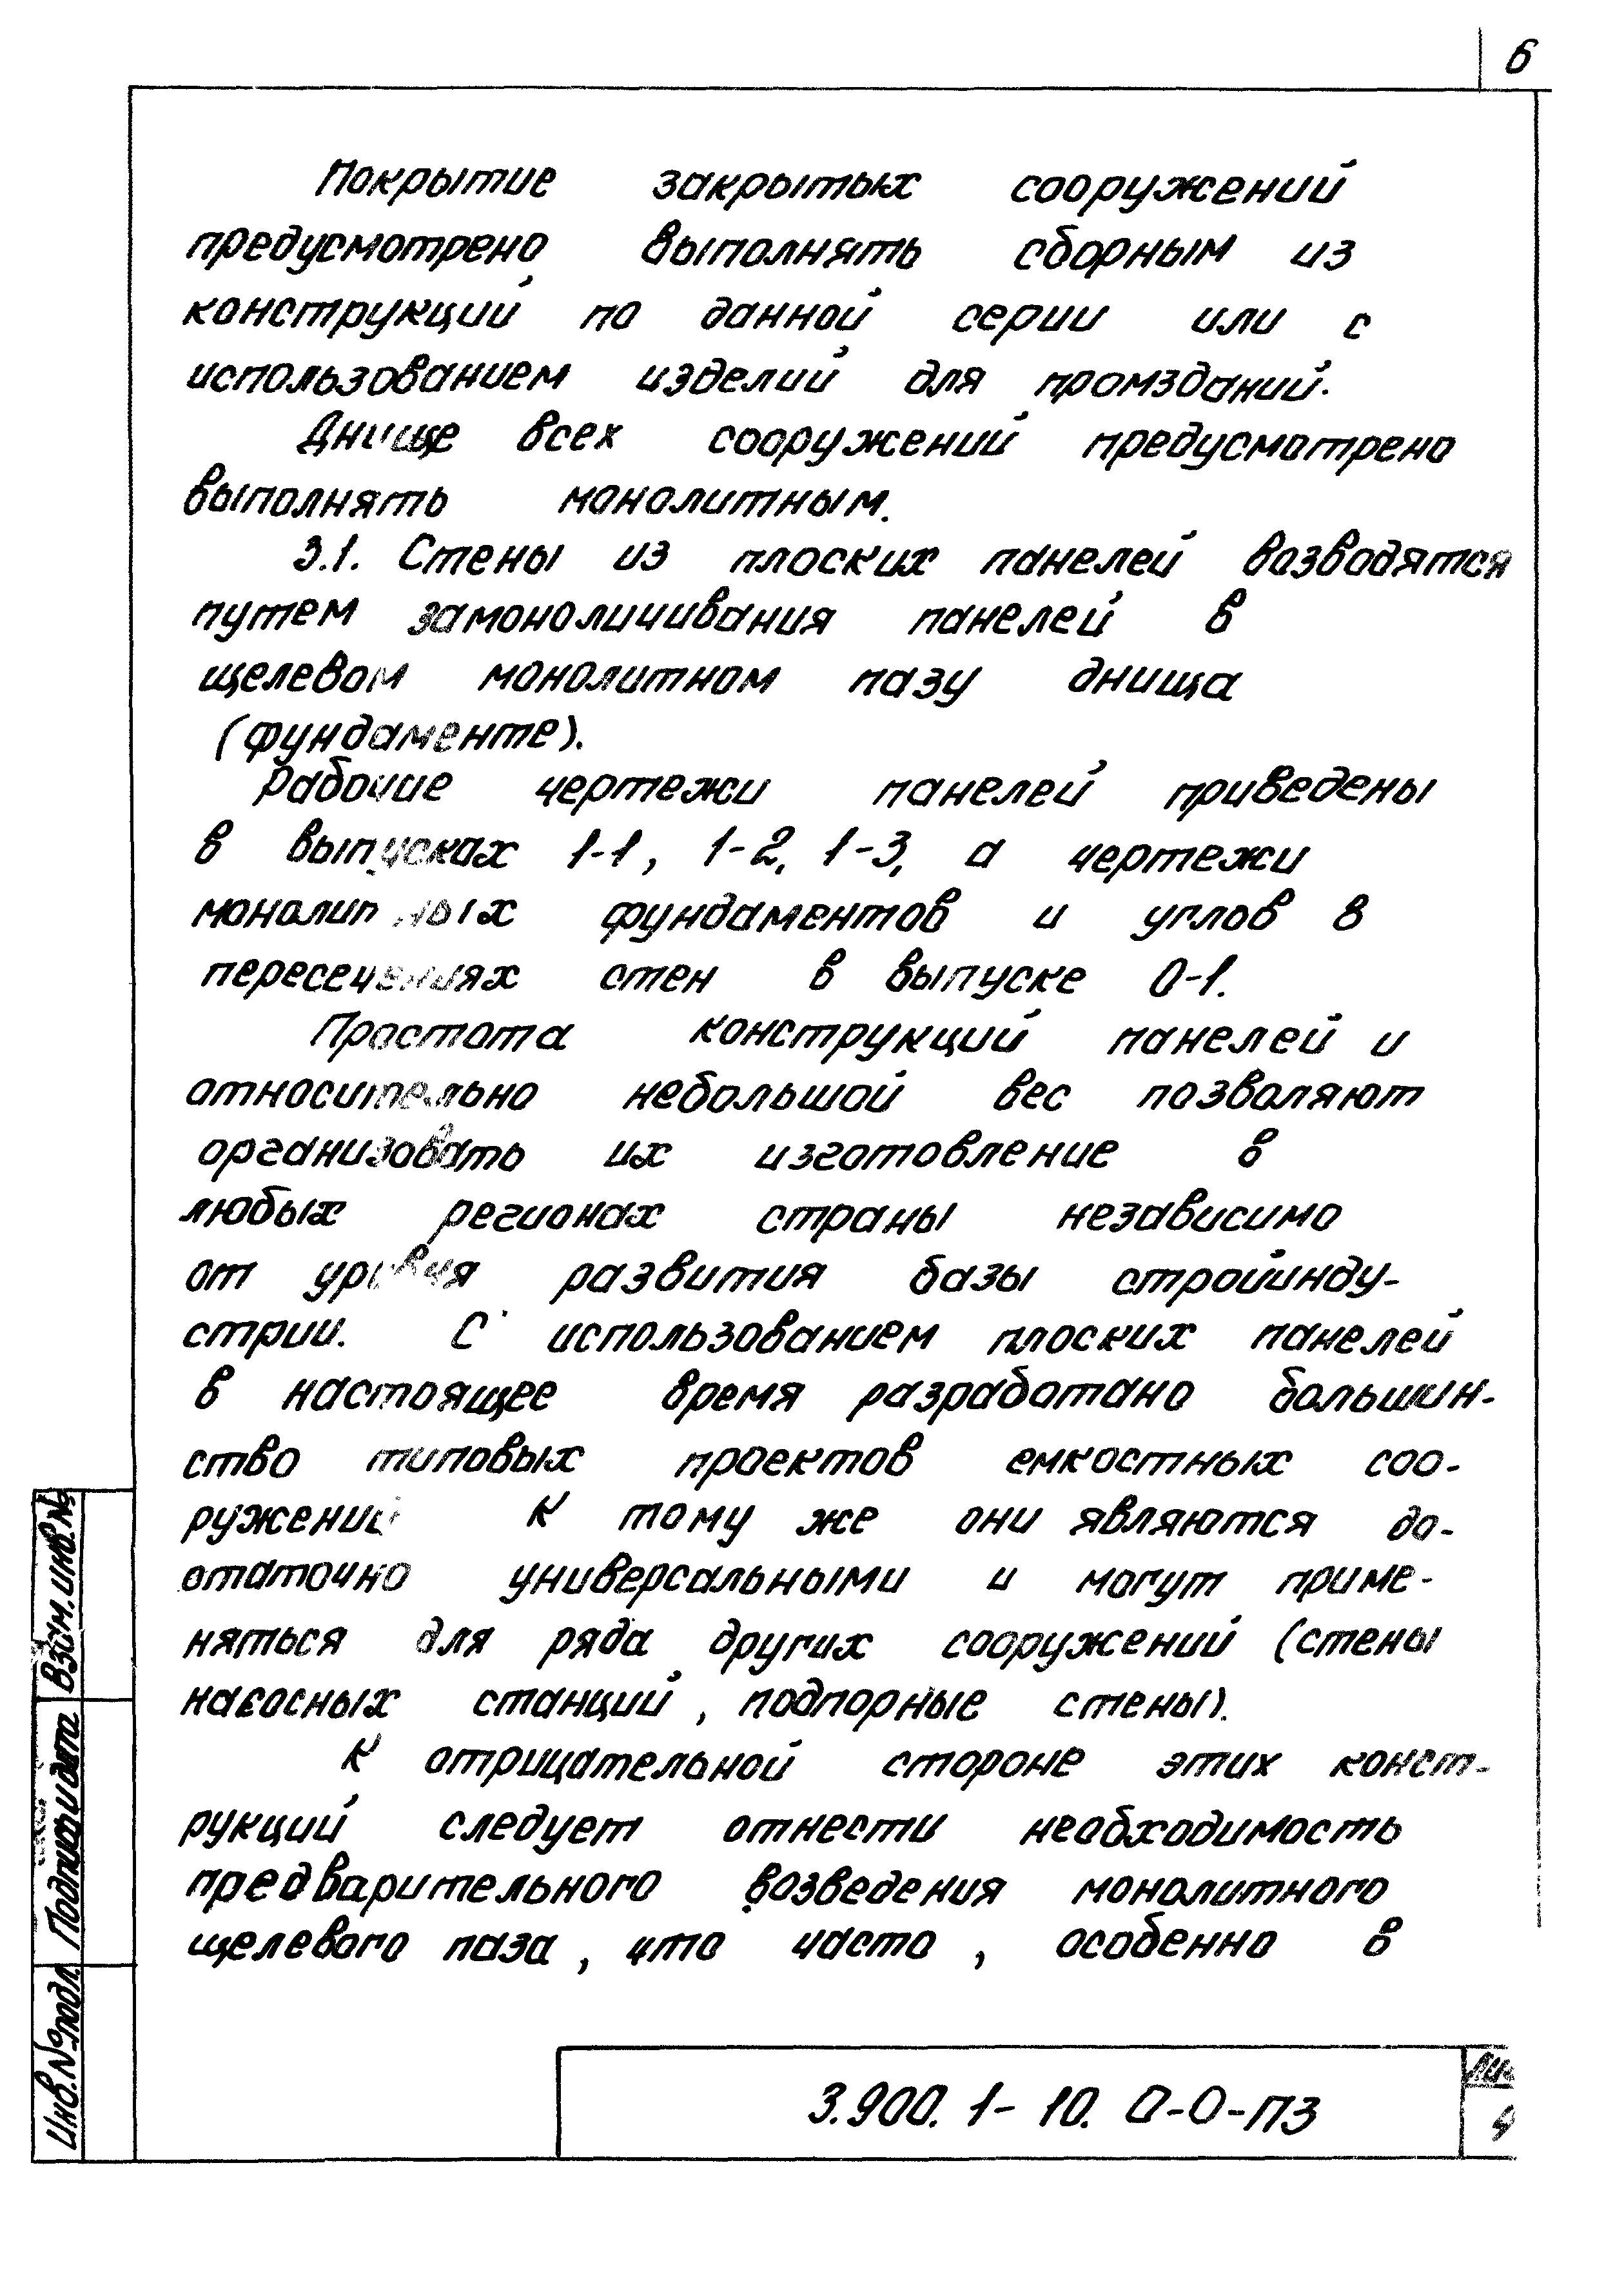 6
Покрытие закрытых сооружений
предусмотрено выполнять сборным из
конструкций по данной серии или с
использованием изделий для промзданий.
Днище всех сооружений предусмотрено
выполнять монолитным.
3.1. Стены из плоских панелей возводятся
путем замоноличивания панелей в
щелевом монолитном пазу днища
(фундаменте).
Рабочие чертежи панелей приведены
в выпусках 1-1, 1-2, 1-3, а чертежи
монолитных фундаментов и углов в
пересечениях стен в выпуске 0-1.
Простота конструкций панелей и
относительно небольшой вес позволяют
организовать их изготовление в
любых регионах страны независимо
от уровня развития базы стройинду-
стрии. С использованием плоских панелей
в настоящее время разработано большин-
ство типовых проектов емкостных соо-
ружений К тому же они являются до-
статочно универсальными и могут приме-
няться для ряда других сооружений (стены
насосных станций, подпорные стены).
К отрицательной стороне этих конст-
рукций следует отнести необходимость
предварительного возведения монолитного
щелевого паза, что часто, особенно в
Взам. инв. №
Подпись и дата
Инв. № подл.
3.900.1-10.0-0-ПЗ
Лис
4